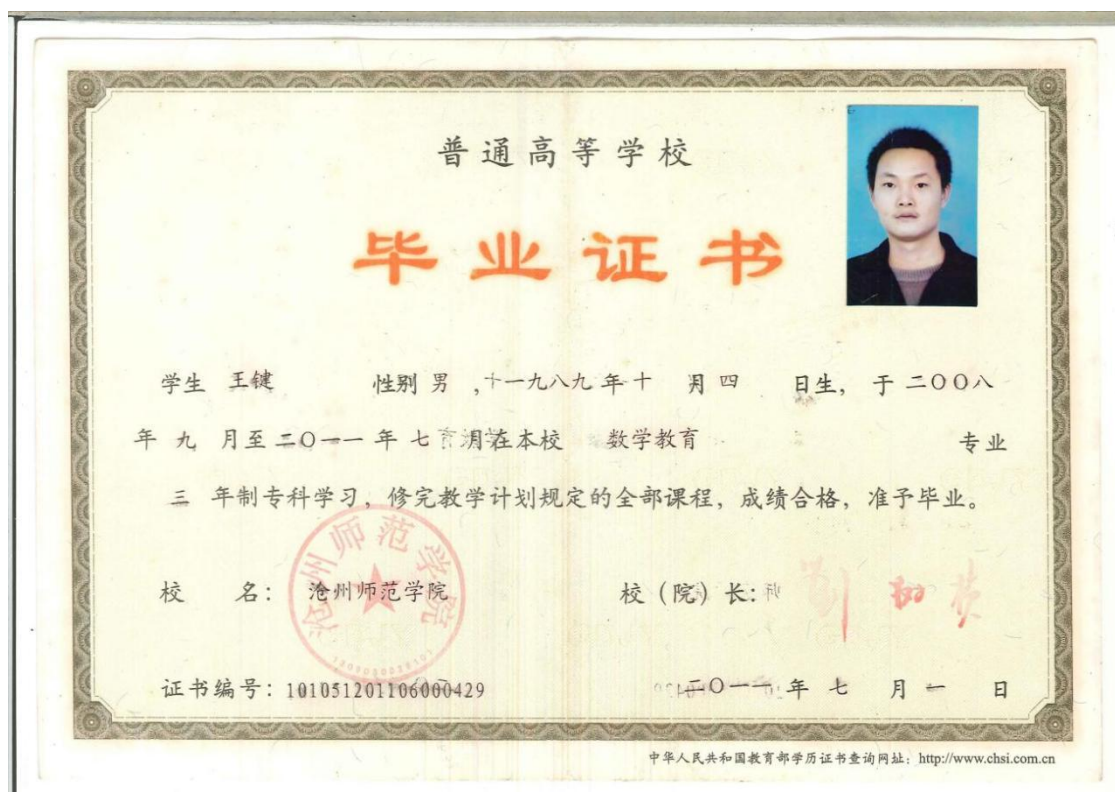 普通高等学校
毕业证书
学生 王键 性别 男 ,十一九八九 年 十 月 四 日生, 于 二〇〇八
年 九 月至 二〇一一 年 七 月在本校 数学教育 专业
三 年制专科学习, 修完教学计划规定的全部课程, 成绩合格, 准予毕业。
校 名: 沧州师范学院 校(院)长:
沧州师范学院
证书编号: 101051201106000429 二〇一一 年 七 月 一 日
中华人民共和国教育部学历证书查询网址: http://www.chsi.com.cn